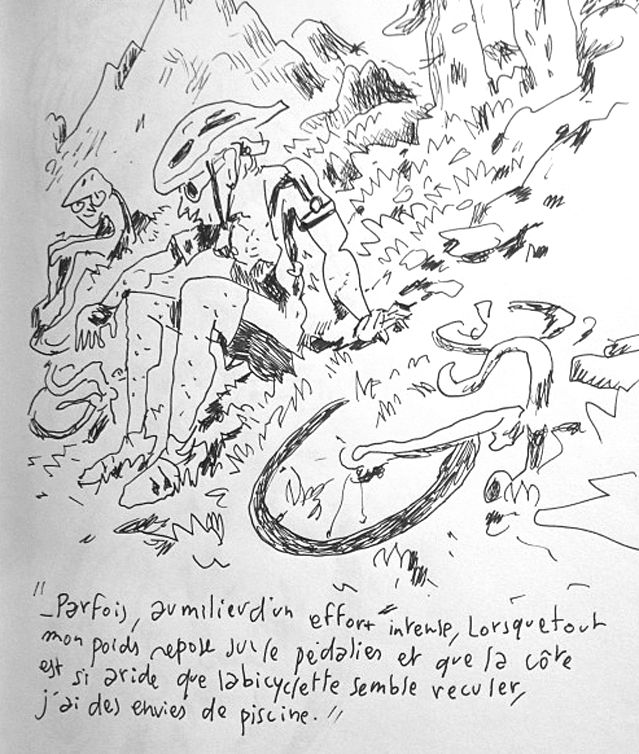 "_Parfois, au milieu d'un effort intense, Lorsque tout
mon poids repose sur le pédalier et que la côte
est si aride que la bicyclette semble reculer,
j'ai des envies de piscine."